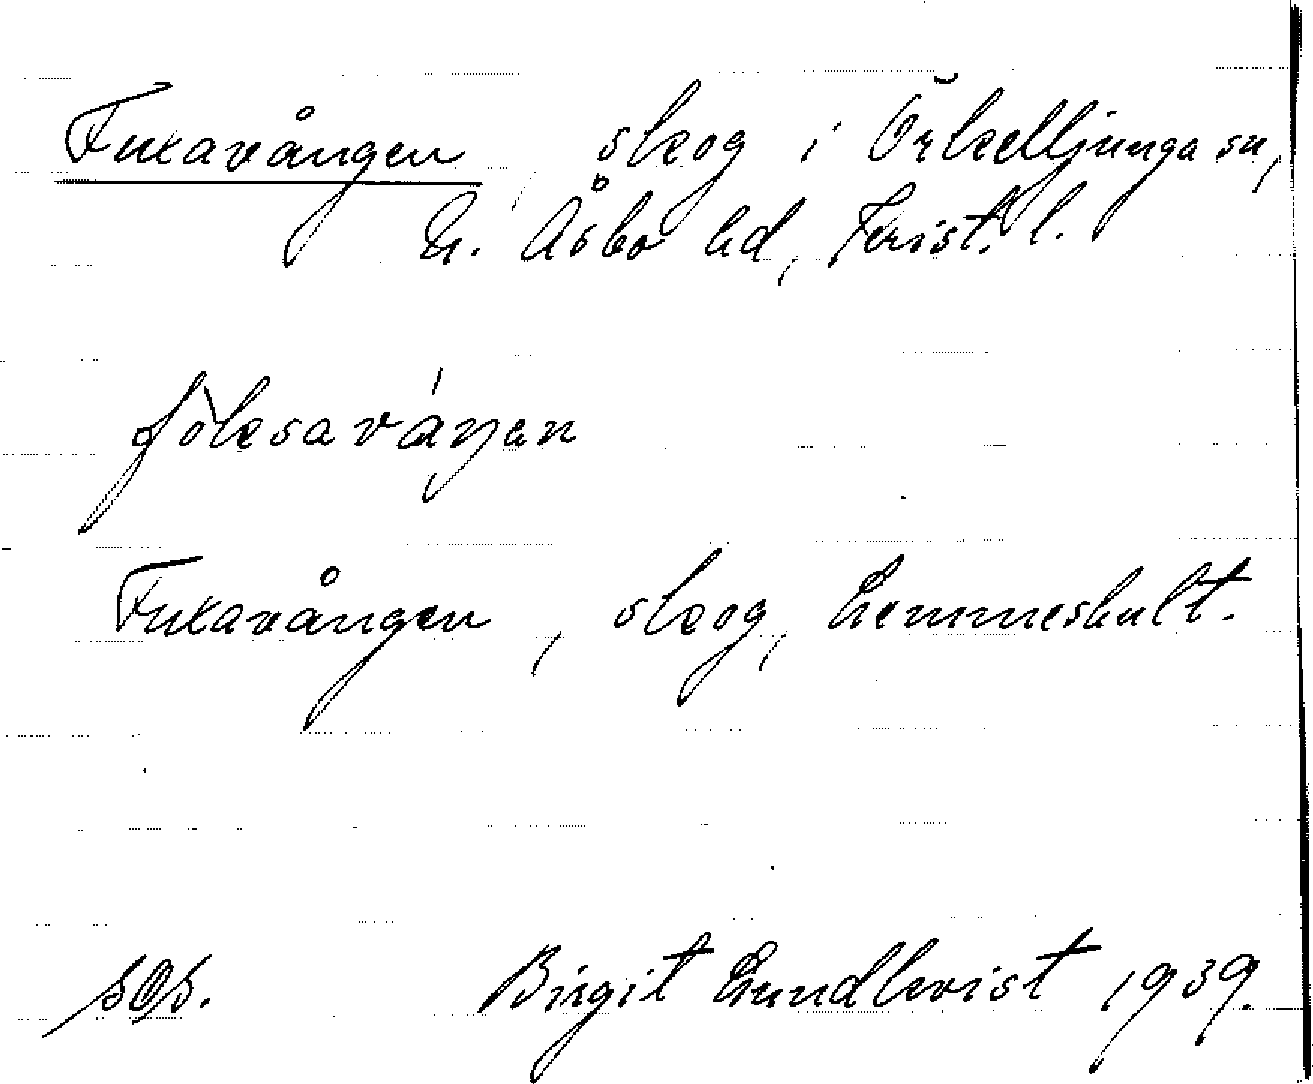 Fuxavången, skog i Örkelljunga sn,
N. Åsbo hd, Krist. l.
fòksaváŋan
Fuxavången, skog, Lemmeshult.
SOS. Birgit Lundkvist 1939.